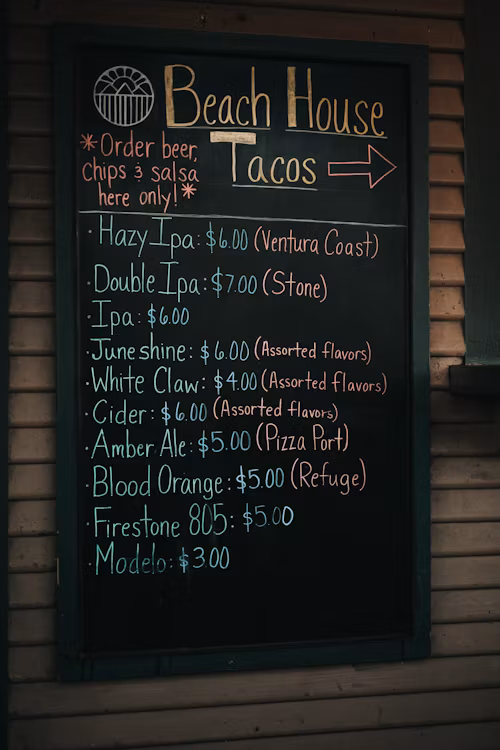 Beach House
Tacos
*Order beer,
chips & salsa
here only!*
· Hazy Ipa: $6.00 (Ventura Coast)
· Double Ipa: $7.00 (Stone)
· Ipa: $6.00
· Juneshine: $6.00 (Assorted flavors)
· White Claw: $4.00 (Assorted flavors)
· Cider: $6.00 (Assorted flavors)
· Amber Ale: $5.00 (Pizza Port)
· Blood Orange: $5.00 (Refuge)
· Firestone 805: $5.00
· Modelo: $3.00